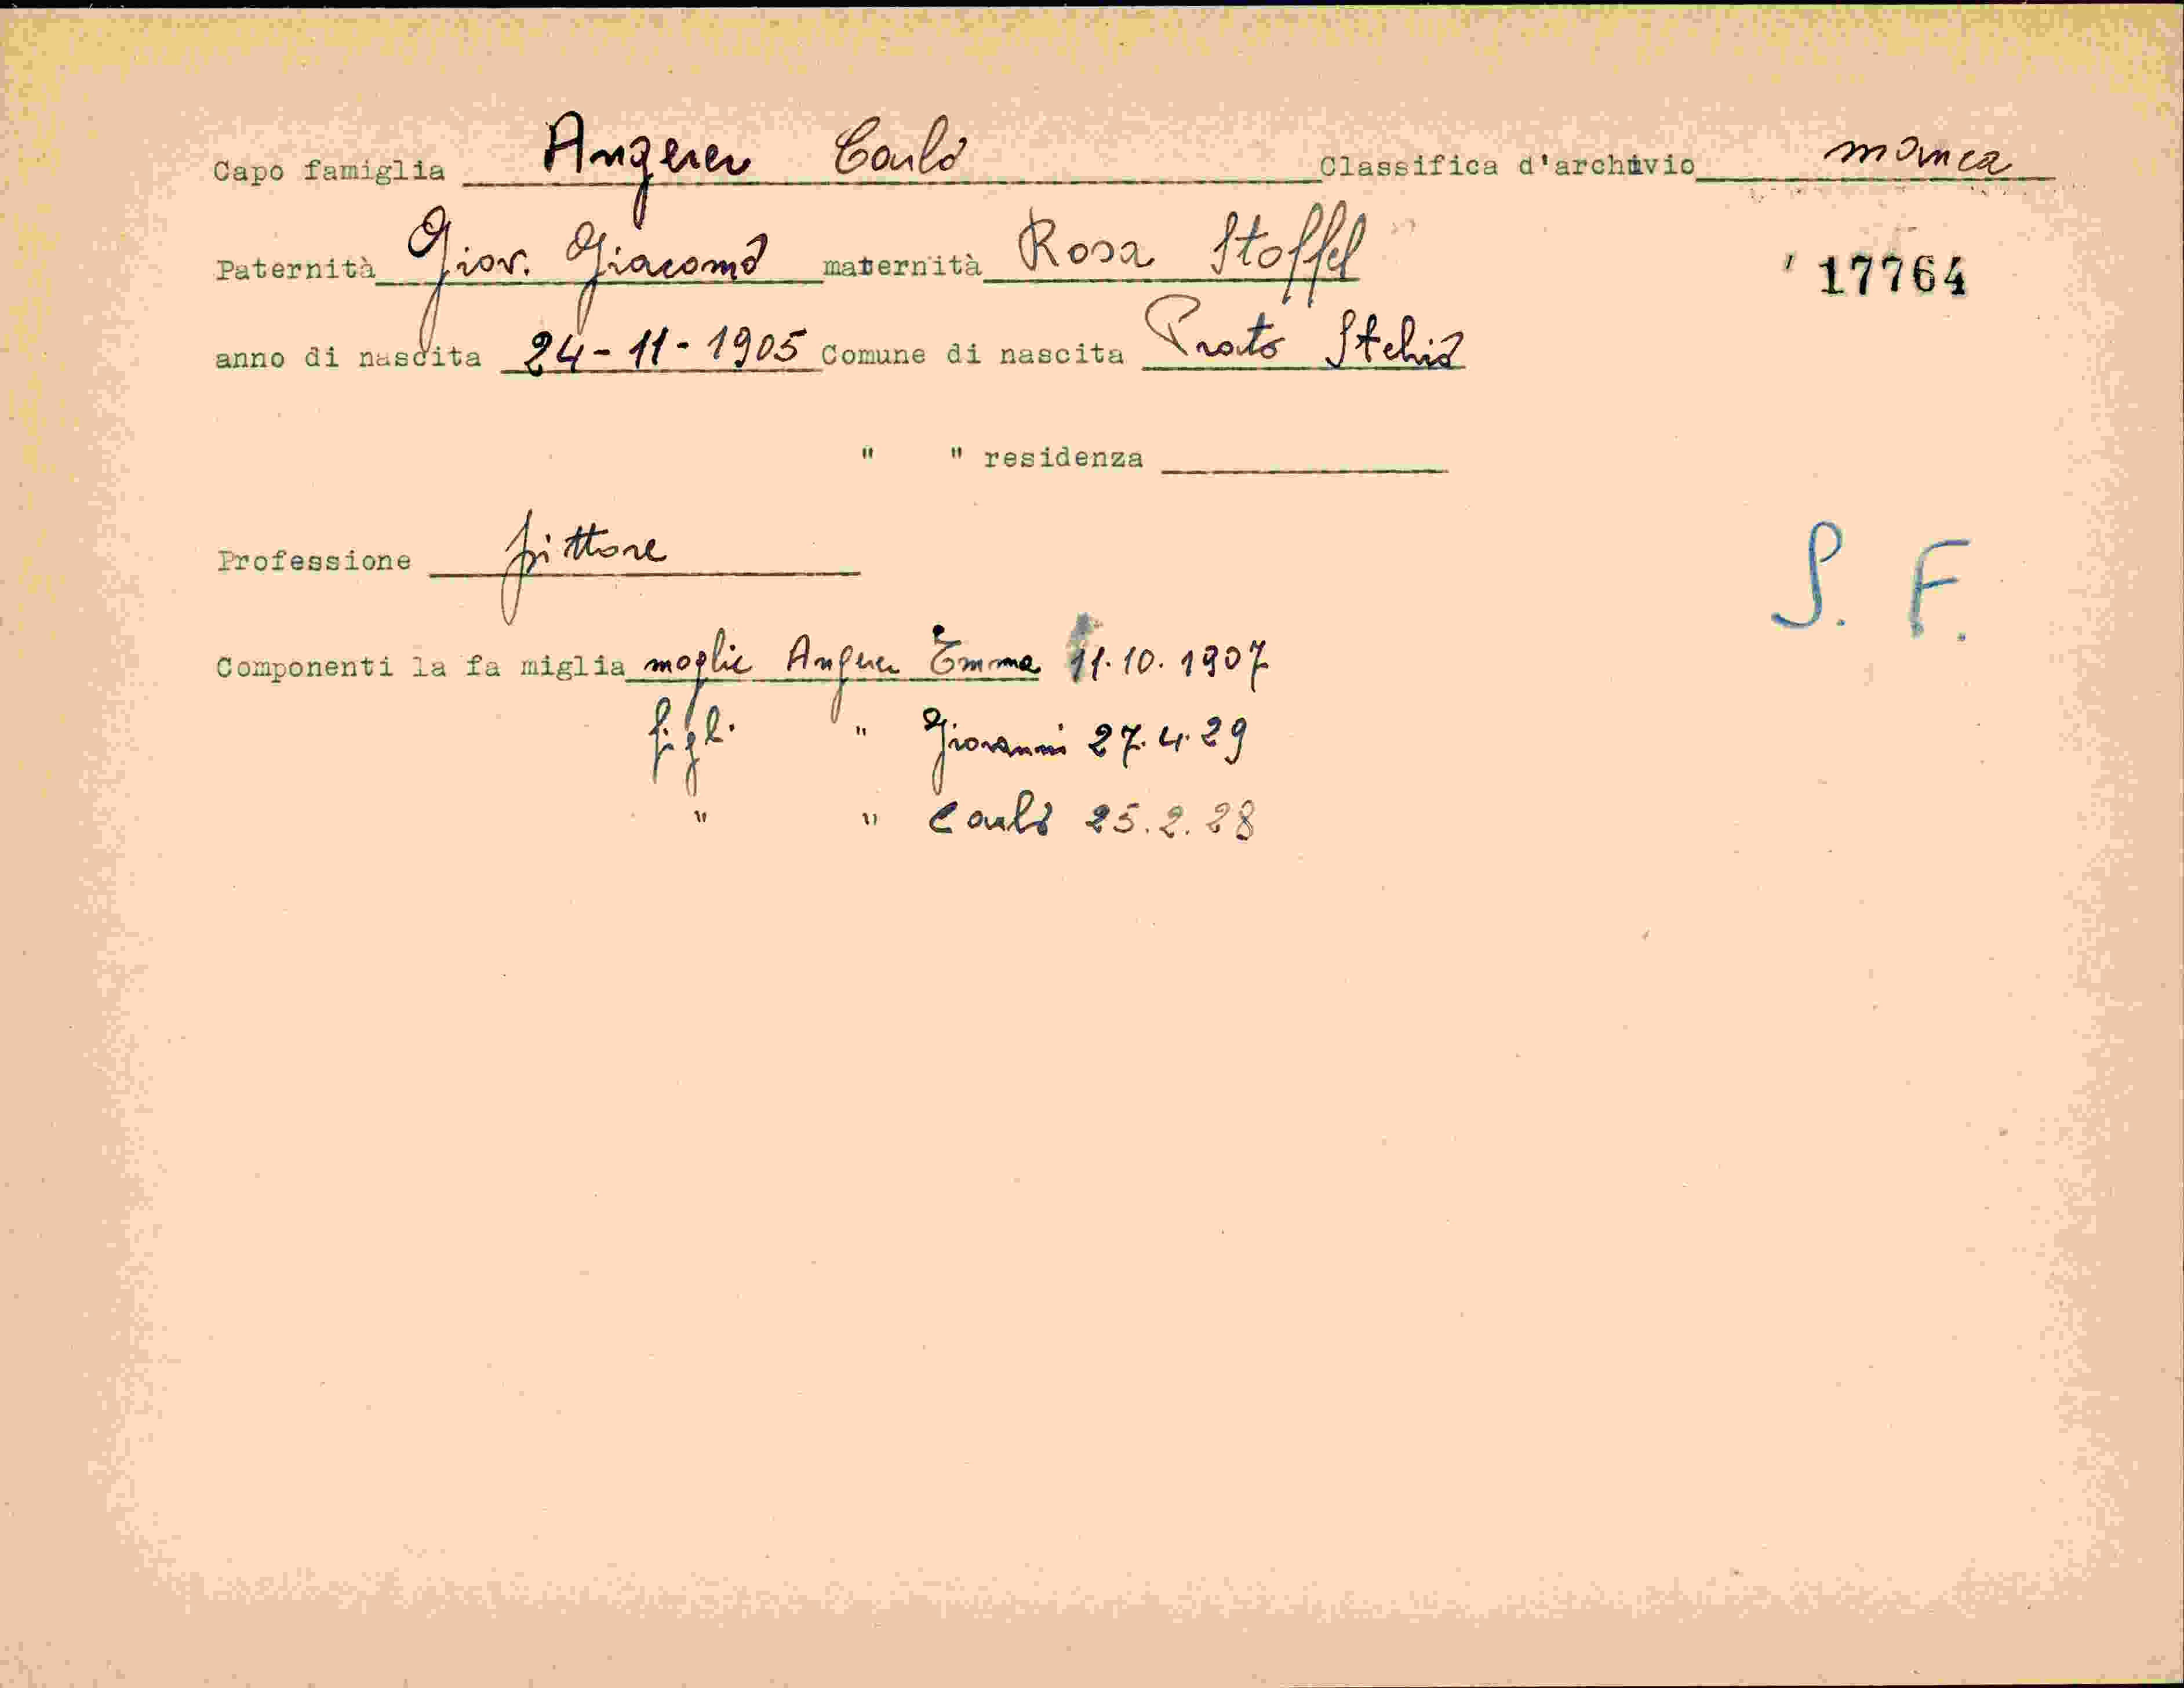 Capo famiglia Angerer Carlo Classifica d'archivio manca
Paternità Giov. Giacomo maternità Rosa Stoffel
' 17764
anno di nascita 24-11-1905 Comune di nascita Prato Stelvio
" " residenza
Professione pittore
S. F.
Componenti la fa miglia moglie Angerer Emma 11.10.1907
figli " Giovanni 27.4.29
" " Carlo 25.2.28